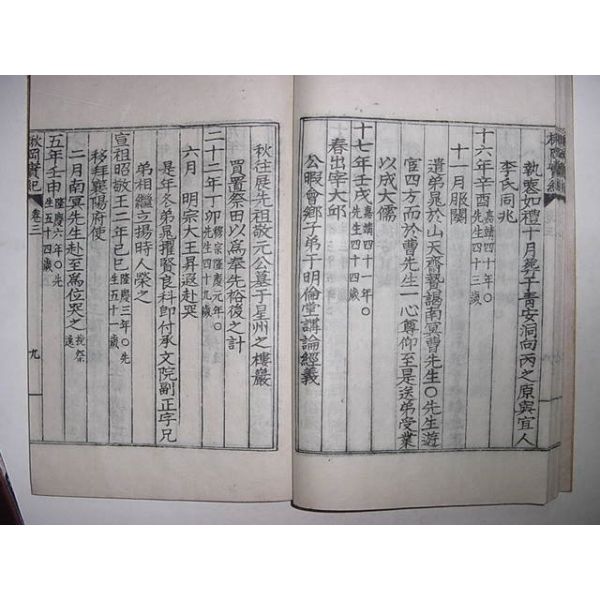 執喪如禮十月葬于青安洞向丙之原與宜人
李氏同兆
十六年辛酉嘉靖四十年○先生四十三歲
十一月服闋
遣弟晁於山天齋贄謁南冥曹先生○先生遊
官四方而於曹先生一心尊仰至是送弟受業
以成大儒
十七年壬戌嘉靖四十一年○先生四十四歲
春出宰大邱
公暇會鄉子弟于明倫堂講論經義
秋往展先祖敬元公墓于星州之樓巖
買置祭田以爲奉先裕後之計
二十二年丁卯穆宗隆慶元年○先生四十九歲
六月 明宗大王昇遐赴哭
是年冬弟晁擢賢良科即付承文院副正字兄
弟相繼立揚時人榮之
宣祖昭敬王二年己巳隆慶三年○先生五十一歲
移拜襄陽府使
二月南冥先生赴至爲位哭之
五年壬申隆慶六年○先生五十四歲
秋岡實記 卷三 九